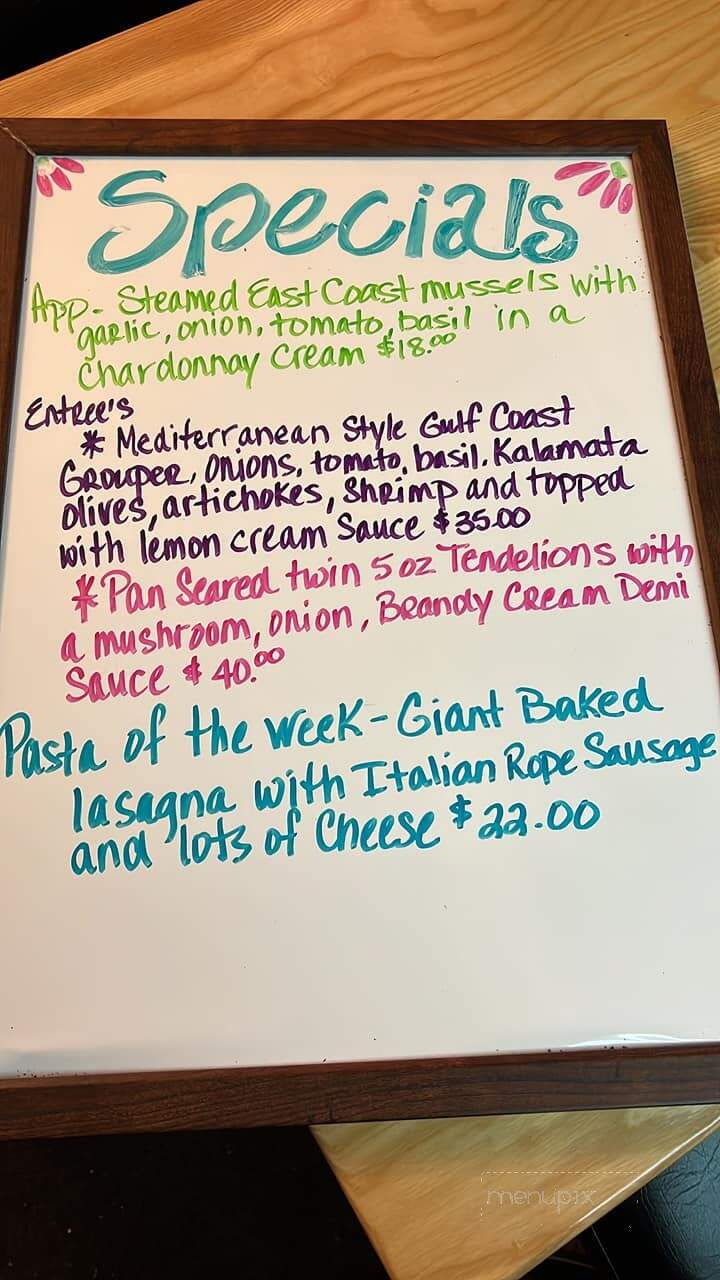 Specials
App- Steamed East Coast mussels with
garlic, onion, tomato, basil in a
Chardonnay Cream $18.00
Entree's
* Mediterranean Style Gulf Coast
Grouper, Onions, tomato, basil. Kalamata
olives, artichokes, Shrimp and topped
with lemon cream Sauce $35.00
* Pan Seared twin 5 oz Tendelions with
a mushroom, onion, Brandy Cream Demi
Sauce $40.00
Pasta of the week - Giant Baked
lasagna with Italian Rope Sausage
and lots of Cheese $22.00
menupix